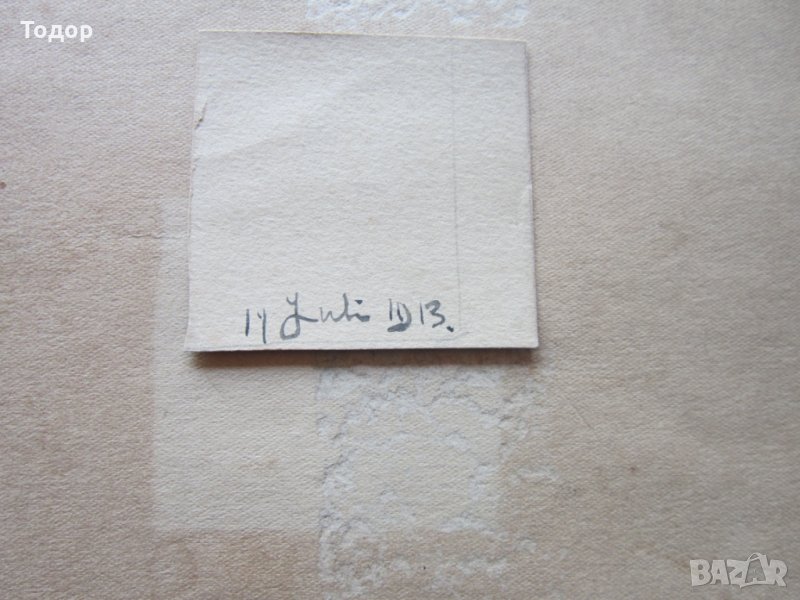 Тодор
Juli 1913.
BAZAR